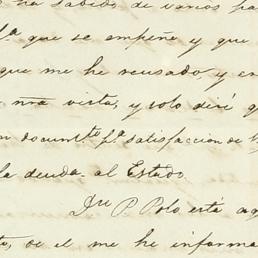 ha sabido de varios pa
pª que se empeñe y que
que me he reusado, y en
nra vista, y solo diré q
n documtto pª satisfaccion de
la deuda al Estado.
P. Polo está aq
to, de el me he informa